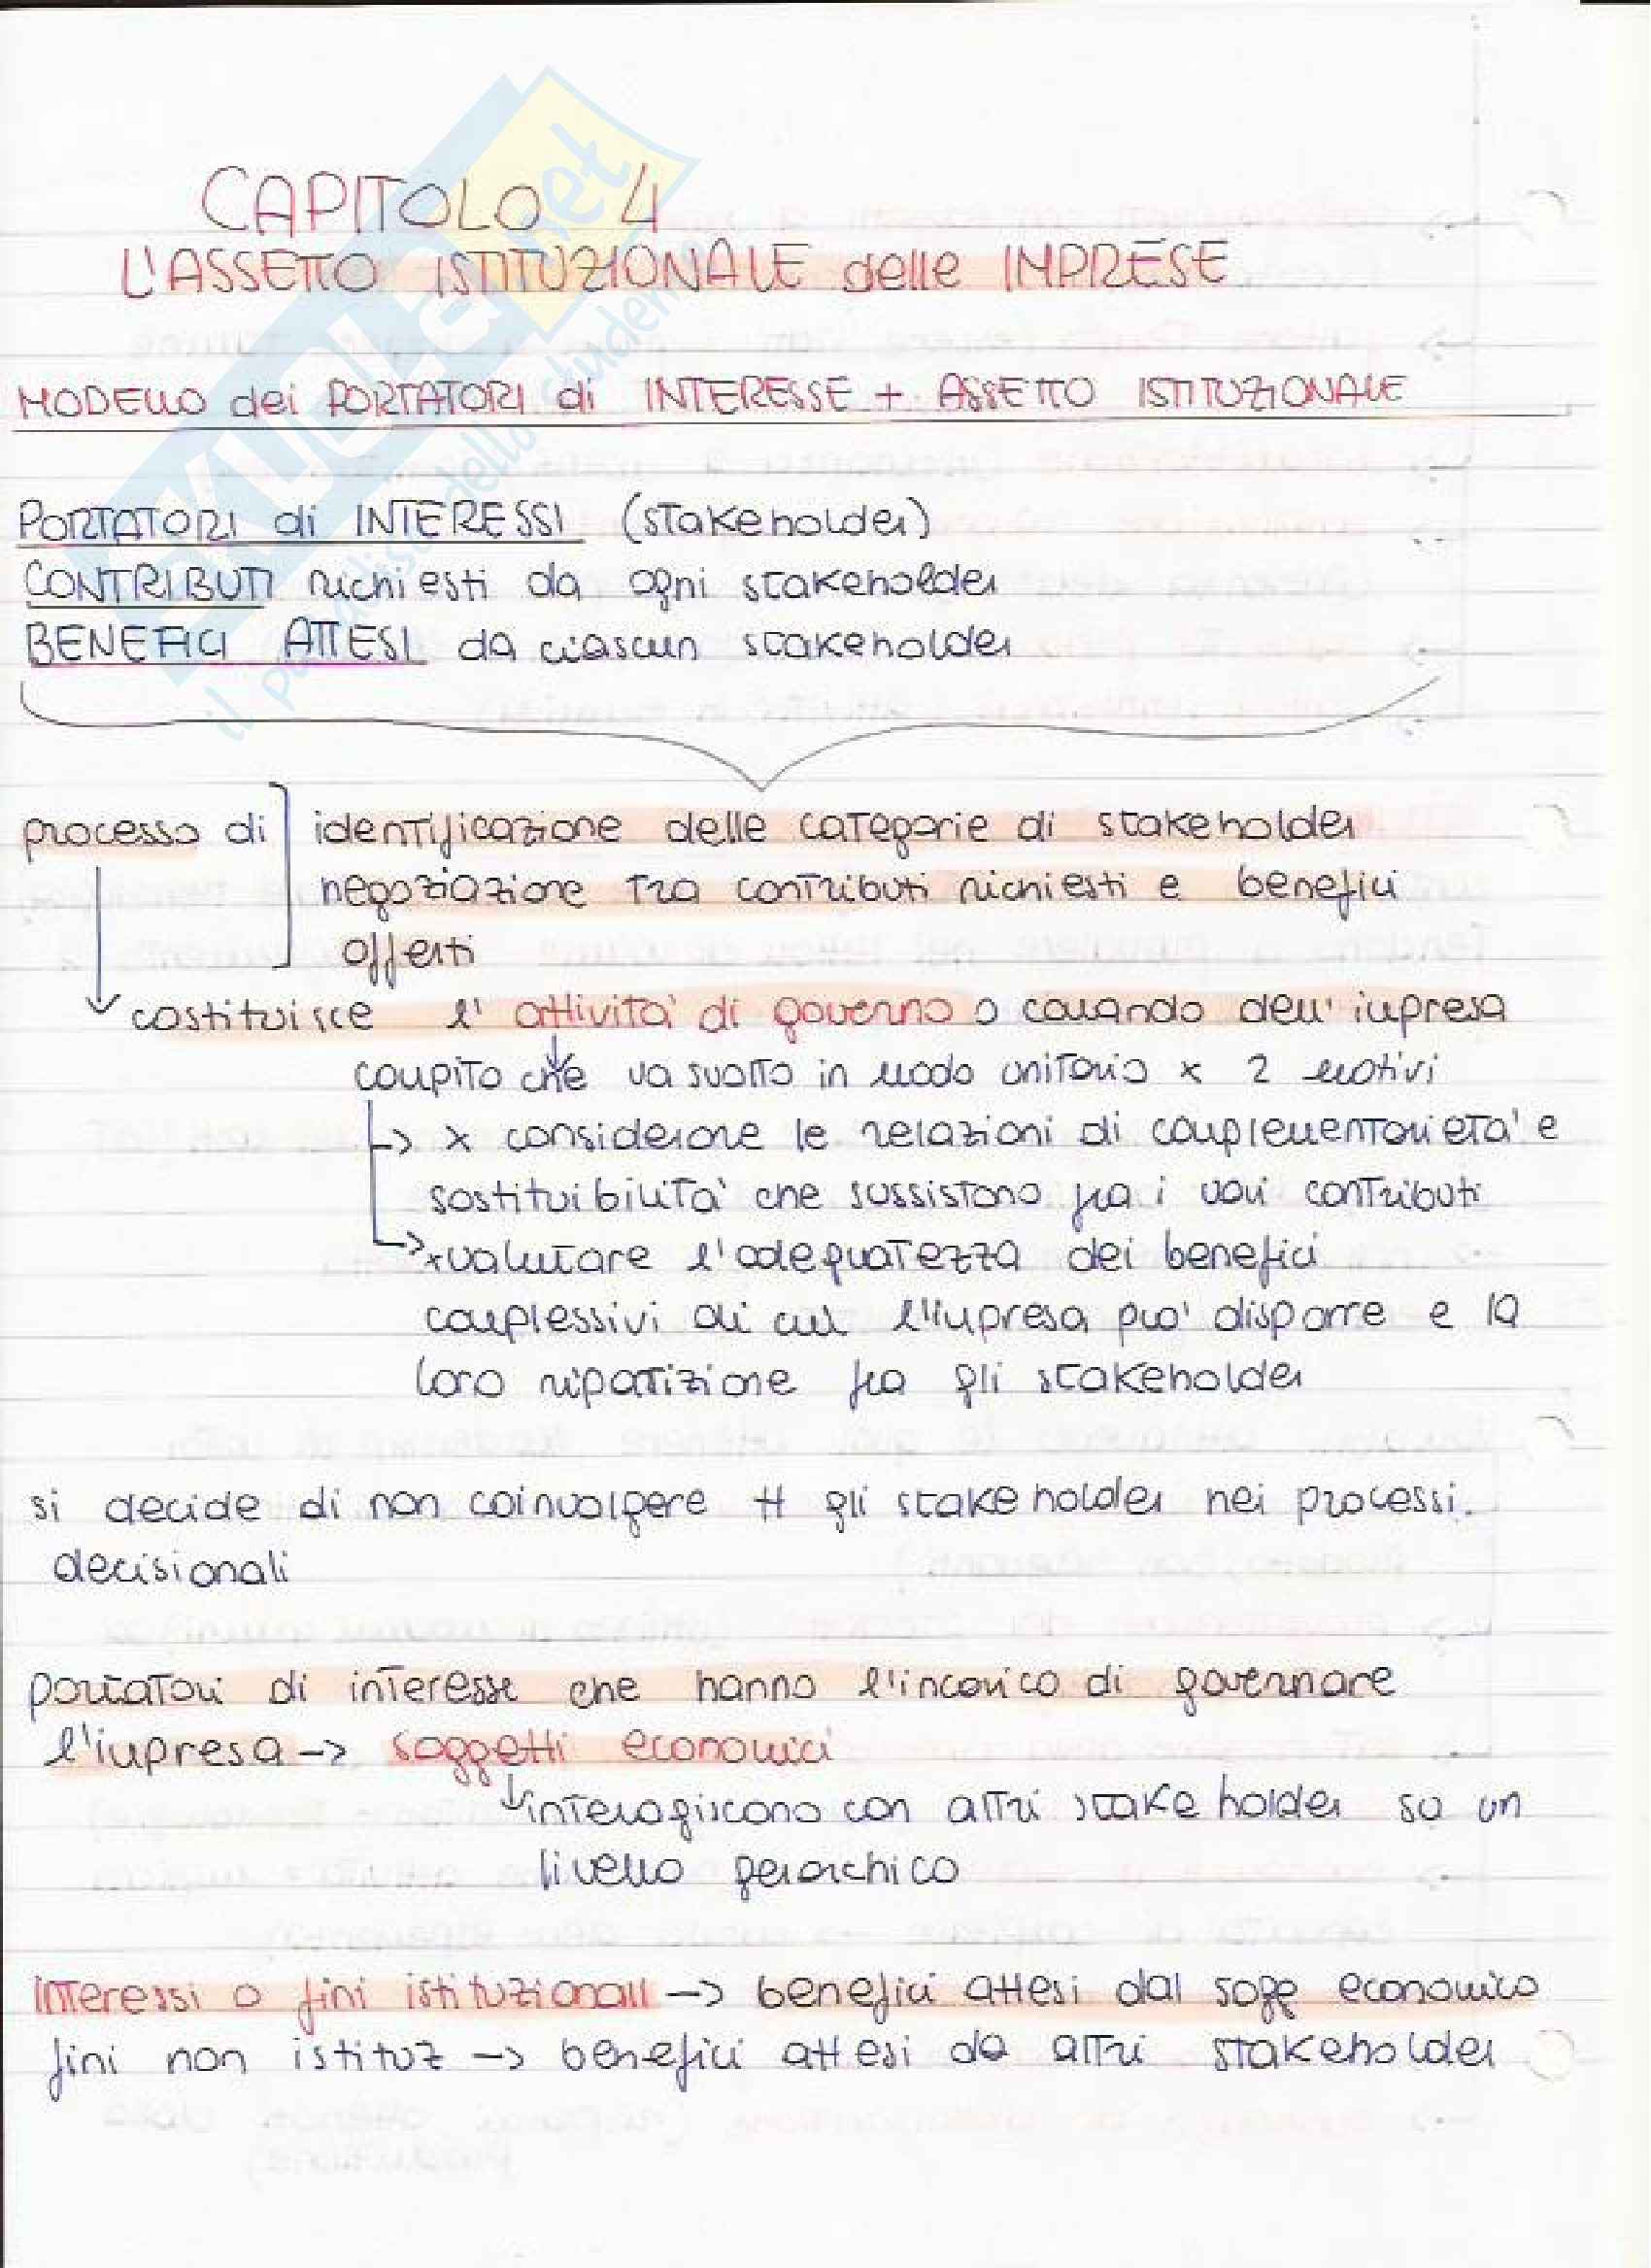 CAPITOLO 4
L'ASSETTO ISTITUZIONALE delle IMPRESE
MODELLO dei PORTATORI di INTERESSE + ASSETTO ISTITUZIONALE
PORTATORI di INTERESSI (stakeholder)
CONTRIBUTI richiesti da ogni stakeholder
BENEFICI ATTESI da ciascun stakeholder
processo di identificazione delle categorie di stakeholder
negoziazione tra contributi richiesti e benefici
offerti
costituisce l'attività di governo o comando dell'impresa
compito che va svolto in modo unitario x 2 motivi
-> x considerare le relazioni di complementarietà e
sostituibilità che sussistono fra i vari contributi
-> x valutare l'adeguatezza dei benefici
complessivi di cui l'impresa può disporre e la
loro ripartizione fra gli stakeholder
si decide di non coinvolgere tt gli stakeholder nei processi
decisionali
portatori di interesse che hanno l'incarico di governare
l'impresa -> soggetti economici
interagiscono con altri stakeholder su un
livello gerarchico
interessi o fini istituzionali -> benefici attesi dal sogg economico
fini non istituz -> benefici attesi da altri stakeholder
SKUOLA.net
il paradiso dello studente